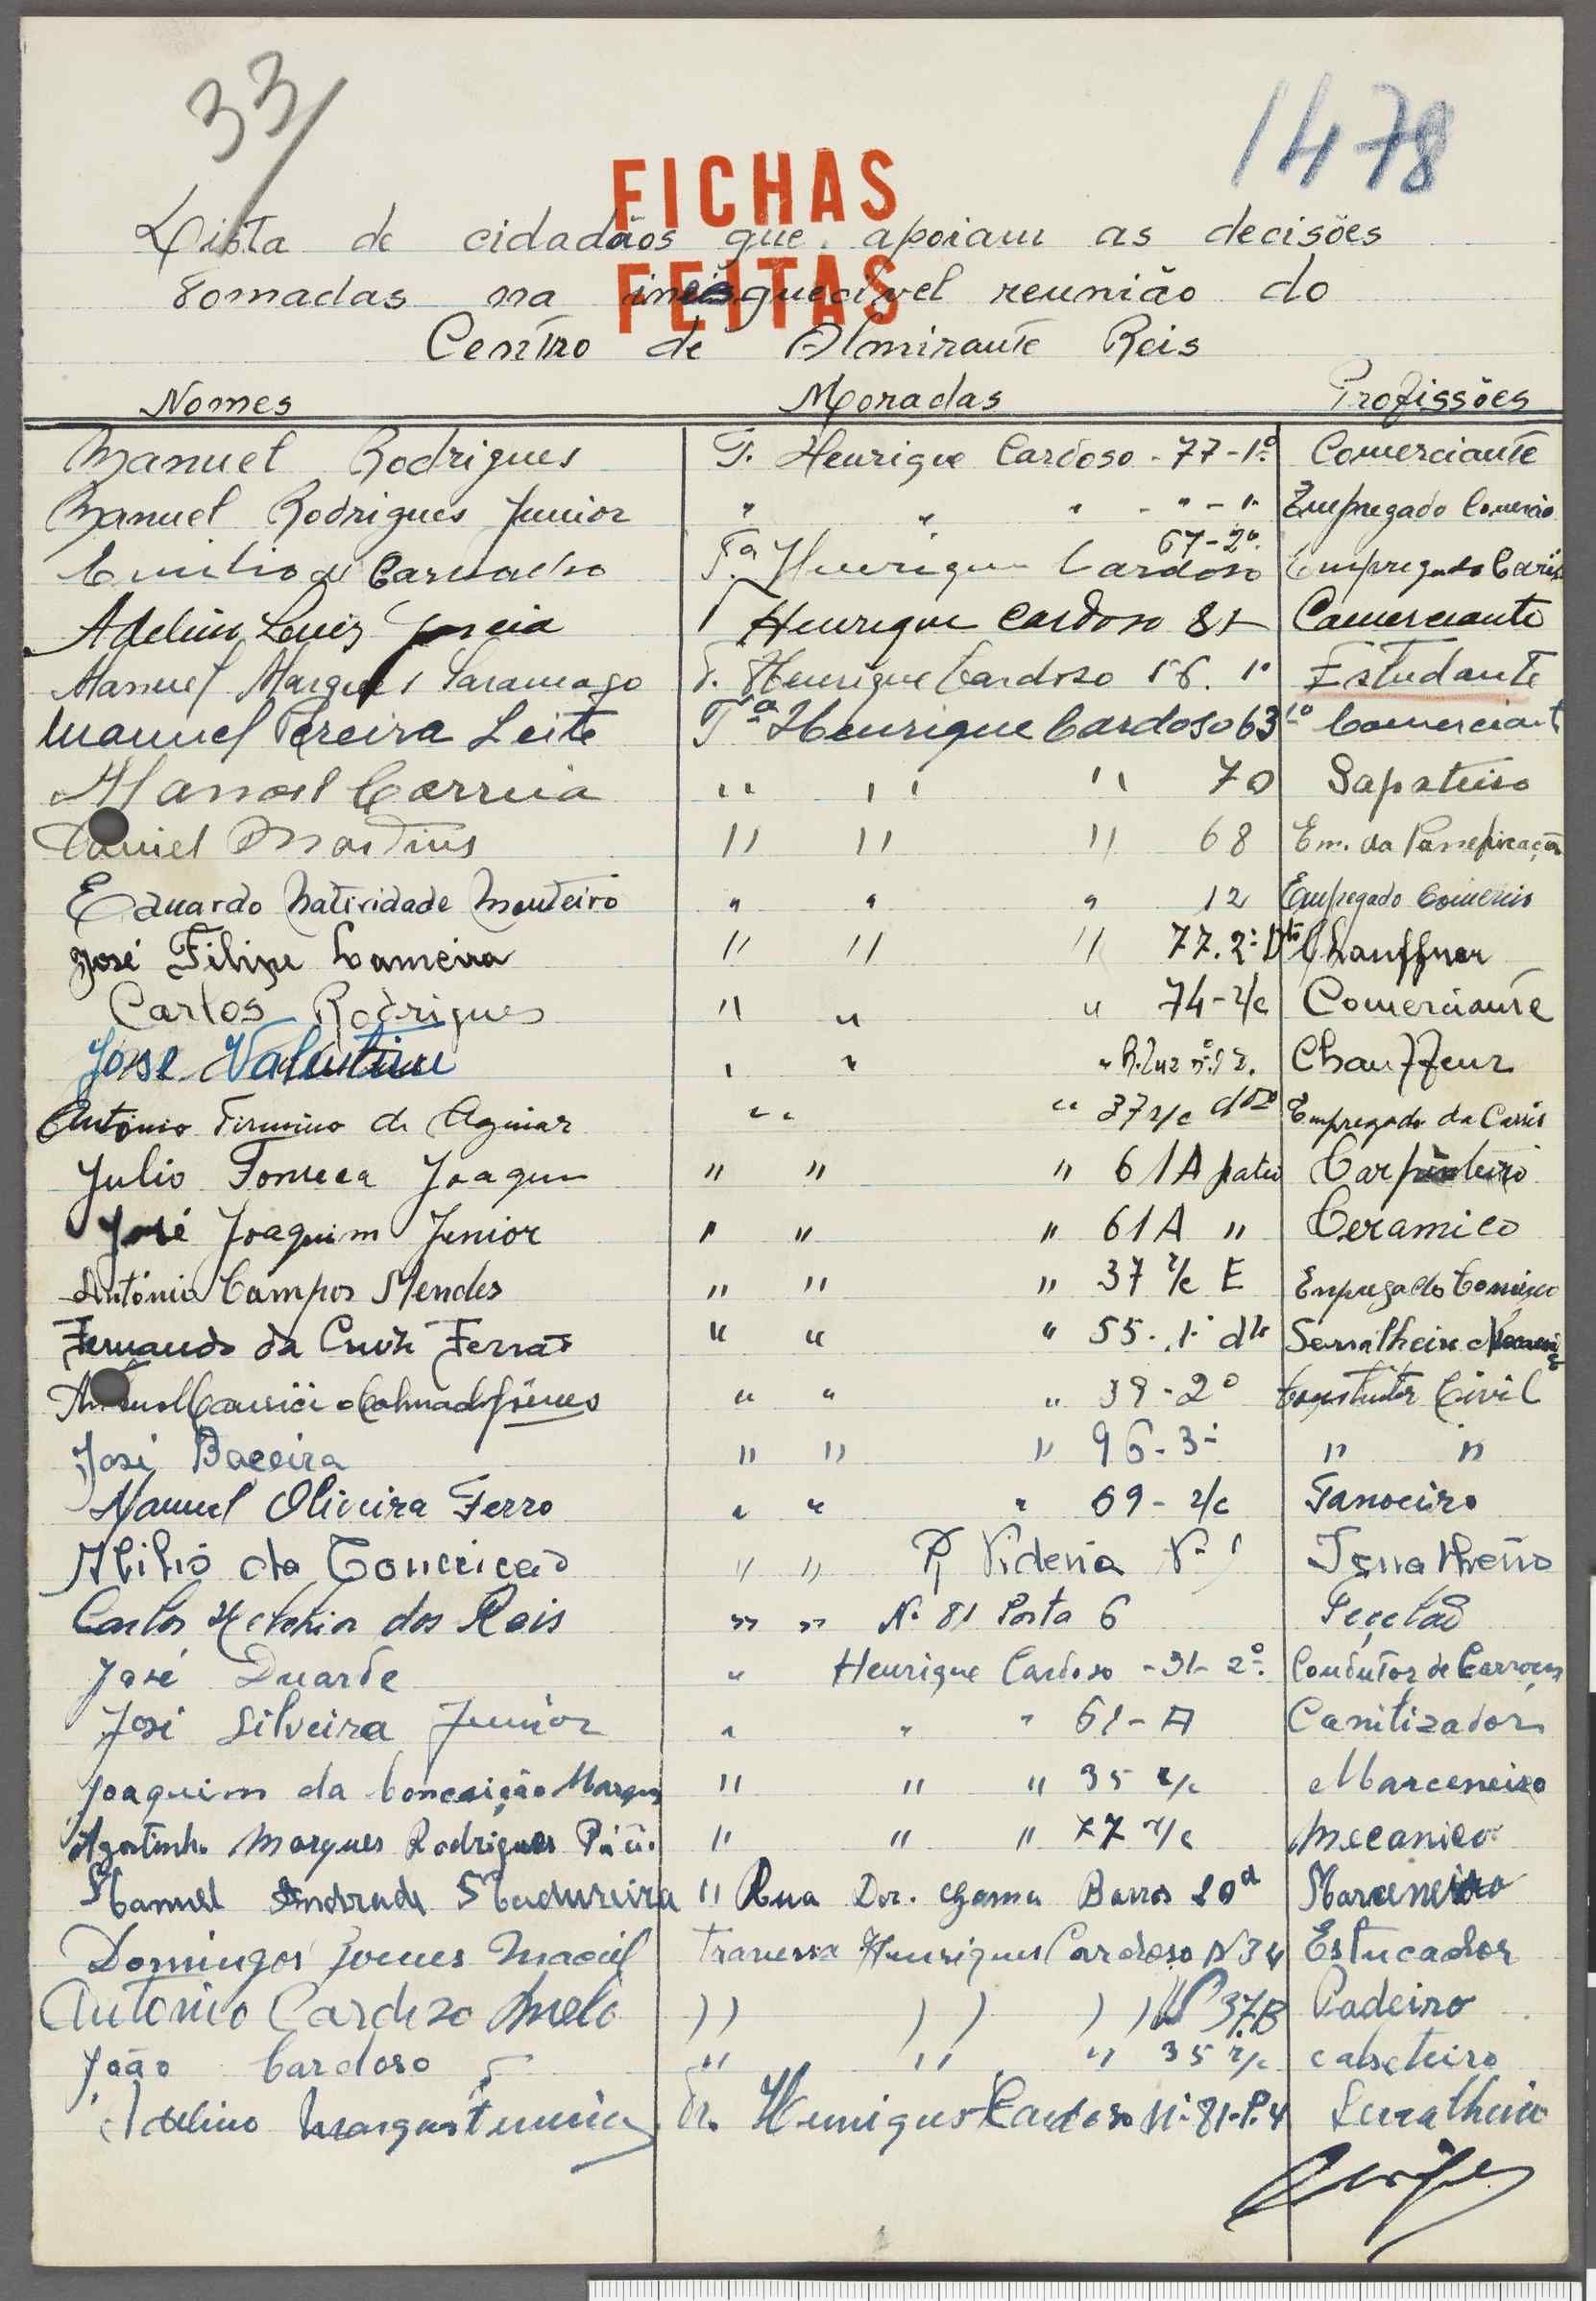 33
1478
FICHAS
FEITAS
Lista de cidadãos que apoiam as decisões
tomadas na inesquecivel reunião do
Centro de Almirante Reis
Nomes Moradas Profissões
Manuel Rodrigues T. Henrique Cardoso - 77-1º Comerciante
Manuel Rodrigues Junior " " " - " - 1º Empregado Comercio
Emilio de Carvalho T.ª Henrique Cardoso 67-2º Empregado Carris
Adelino Luis Garcia T Henrique Cardoso 81 Comerciante
Manuel Marques Saramago T. Henrique Cardoso 56. 1º Estudante
Manuel Pereira Leite Tª Henrique Cardoso 63 1º Comerciant
Manoel Correia " " " 70 Sapateiro
Daniel Martins " " " 68 Em. da Panificação
Eduardo Natividade Monteiro " " " 12 Empregado Comercio
José Filipe Lameira " " " 77. 2º Dto Chauffeur
Carlos Rodrigues " " " 74-r/c Comerciante
José Valentim " " " R. Luz nº 12. Chauffeur
António Firmino de Aguiar " " 37 r/c dto Empregado da Carris
Julio Fonseca Joaquim " " " 61A patio Carpinteiro
José Joaquim Junior " " " 61A " Ceramico
António Campos Mendes " " " 37 r/c E Empregado Comércio
Fernando da Cruz Ferrat " " " 55. 1º dto Serralheiro
" " " 39-2º Construtor Civil
José Baceira " " " 96-3º " "
Manuel Oliveira Ferro " " " 69-r/c Tanoeiro
Abilio da Conceicão " " R Videria Nº 1
Carlos dos Reis " " Nº 81 Porta 6
José Duarte " Henrique Cardoso - 31-2º. Condutor de Carroças
José Silveira Junior " " " 61-A Canitizador
Joaquim da Conceição Marques " " " 35 r/c Marceneiro
Agostinho Marques Rodrigues " " " 77 r/c Mecanico
Manuel Andrade Madureira " Rua Dor. Gama Barros 20 d Marceneiro
Domingos Gomes Maciel Travessa Henriques Cardoso N 34 Estucador
Antonio Cardozo Melo " " " Nº 37B Padeiro
João Cardoso " " " 35 r/c calseteiro
Adelino Marques Tr. Henrique Cardoso Nº 81-P.4 Serralheiro